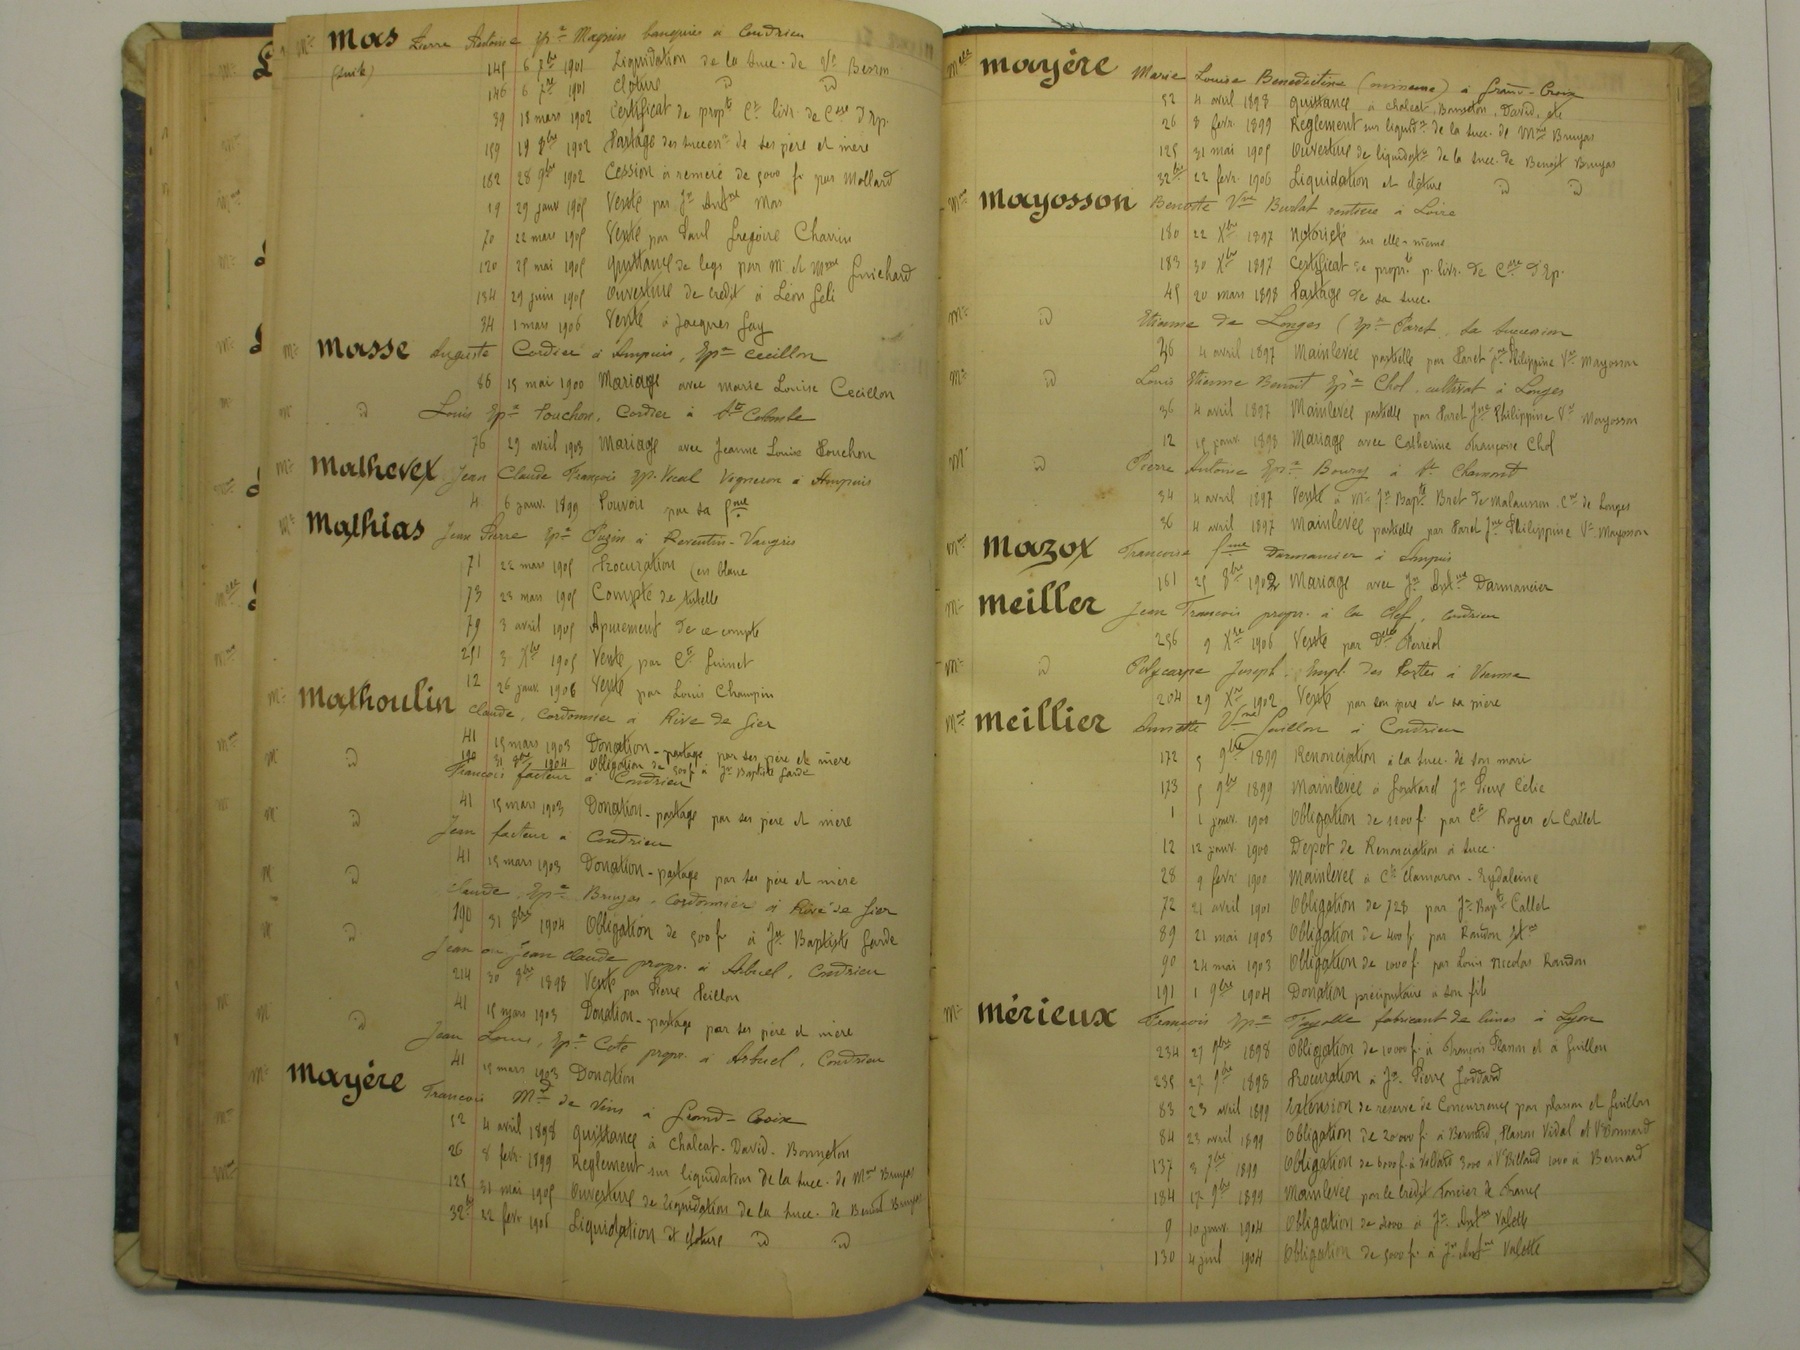 Mr Mas Pierre Antoine Epx Magnin banquier à Condrieu
(suite) 145 6 7bre 1901 Liquidation de la succ. de Ve Berron
146 6 7bre 1901 Clôture d° d°
39 18 mars 1902 Certificat de propté Ct livr. de Csse d'Ep.
159 19 8bre 1902 Partage des succons de ses père et mère
182 28 9bre 1902 Cession à réméré de 5000 f. par Mollard
19 29 janv 1905 Vente par Jn Antne Mas
70 22 mars 1905 Vente par Paul Grégoire Chavin
120 25 mai 1905 Quittance de legs par Mr et Mme Guichard
134 29 juin 1905 Ouverture de crédit à Léon Geli
34 1 mars 1906 Vente à Jacques Gay
Mr Masse Auguste Cordier à Ampuis, Epx Cecillon
86 15 mai 1900 Mariage avec Marie Louise Cecillon
Mr d° Louis Epx Pouchon, Cordier à Ste Colombe
76 29 avril 1903 Mariage avec Jeanne Louise Pouchon
Mr Mathevex Jean Claude François Ep. Vigneron à Ampuis
4 6 janv. 1899 Pouvoir par sa fme
Mr Mathias Jean Pierre Epx Ouzin à Reventin-Vaugris
71 22 mars 1905 Procuration (en blanc
73 23 mars 1905 Compte de tutelle
79 3 avril 1905 Apurement de ce compte
251 3 Xbre 1905 Vente par Ct Guinet
12 26 janv. 1906 Vente par Louis Champin
Mr Mathoulin Claude, Cordonnier à Rive de Gier
41 15 mars 1903 Donation-partage par ses père et mère
190 31 8bre 1904 Obligation de 500 f à Jn Baptiste Garde
Mr d° François facteur à Condrieu
41 15 mars 1903 Donation-partage par ses père et mère
Mr d° Jean facteur à Condrieu
41 15 mars 1903 Donation-partage par ses père et mère
Mr d° Claude, Epx Bruyas, Cordonnier à Rive de Gier
190 31 8bre 1904 Obligation de 500 f. à Jn Baptiste Garde
Mr d° Jean ou Jean Claude propr. à Arbuel, Condrieu
214 30 8bre 1898 Vente par Pierre Peillon
41 15 mars 1903 Donation-partage par ses père et mère
Mr d° Jean Louis, Epx Cote propr. à Arbuel, Condrieu
41 15 mars 1903 Donation
Mr Mayére François Md de Vins à Grand-Croix
52 4 avril 1898 Quittance à Chaleat-David-Bonneton
26 8 fevr. 1899 Reglement sur liquidation de la succ. de Mme Bruyas
125 31 mai 1905 Ouverture de liquidation de la succ. de Benoit Bruyas
32bis 22 fevr 1906 Liquidation et clôture d° d°
Melle Mayére Marie Louise Benedictine (mineure) à Grand-Croix
52 4 avril 1898 Quittance à Chaleat, Bonneton, David, etc
26 8 fevr. 1899 Reglement sur liquidon de la succ. de Mme Bruyas
125 31 mai 1905 Ouverture de liquidaton de la succ. de Benoit Bruyas
32bis 22 fevr. 1906 Liquidation et clôture d° d°
Mme Mayosson Benoite Vve Burlat rentière à Loire
180 22 Xbre 1897 Notoriété sur elle-même
183 30 Xbre 1897 Certificat de propté p. livr. de Csse d'Ep.
45 20 mars 1898 Partage de sa succ.
Mr d° Etienne de Longes (Epx Paret. sa succession
36 4 avril 1897 Mainlevée partielle par Paret Jne Philippine Ve Mayosson
Mr d° Louis Etienne Benoit Epx Chol, cultivat à Longes
36 4 avril 1897 Mainlevée partielle par Paret Jne Philippine Ve Mayosson
12 15 janv. 1898 Mariage avec Catherine Françoise Chol
Mr d° Pierre Antoine Epx Boury à St Chamond
34 4 avril 1897 Vente à Mr Jn Bapte Bret de Malausson. Cne de Longes
36 4 avril 1897 Mainlevée partielle par Paret Jne Philippine Ve Mayosson
Mme Mazox Françoise fme Darmancier à Ampuis
161 25 8bre 1902 Mariage avec Jn Antne Darmancier
Mr Meiller Jean François propr. à la Clef, Condrieu
256 9 Xbre 1906 Vente par Delle Perréol
Mr d° Polycarpe Joseph, Empl. des Postes à Vienne
204 29 Xbre 1902 Vente par son père et sa mère
Mme Meillier Annette Vve Guillon à Condrieu
172 5 9bre 1899 Renonciation à la succ. de son mari
173 5 9bre 1899 Mainlevée à Jn Pierre
1 1 janv. 1900 Obligation de 1200 f. par Ct Royer et Callet
12 12 janv. 1900 Depot de Renonciation à succ.
28 9 fevr. 1900 Mainlevée à Ct Clamaron-Eydaleine
72 21 avril 1901 Obligation de 728 par Jn Bapte Callet
89 21 mai 1903 Obligation de 400 f. par Randon
90 24 mai 1903 Obligation de 1000 f. par Louis Nicolas Randon
191 1 9bre 1904 Donation préciputaire à son fils
Mr Mérieux François Epx Fayolle fabricant de limes à Lyon
234 27 9bre 1898 Obligation de 10000 f. à François Planson et à Guillon
235 27 9bre 1898 Procuration à Jn Pierre Goddard
83 23 avril 1899 Extension de reserve de Concurrence par planson et Guillon
84 23 avril 1899 Obligation de 20000 f. à Bernard, Planson Vidal et Ve Bonnard
137 3 7bre 1899 Obligation de 6000 f. à Vollard 3000 à Ve Billard 1000 à Bernard
184 17 9bre 1899 Mainlevée par le Crédit Foncier de France
9 10 janv. 1904 Obligation de 2000 à Jn Antne Valette
130 4 juil 1904 Obligation de 5000 f. à Jn Antne Valette